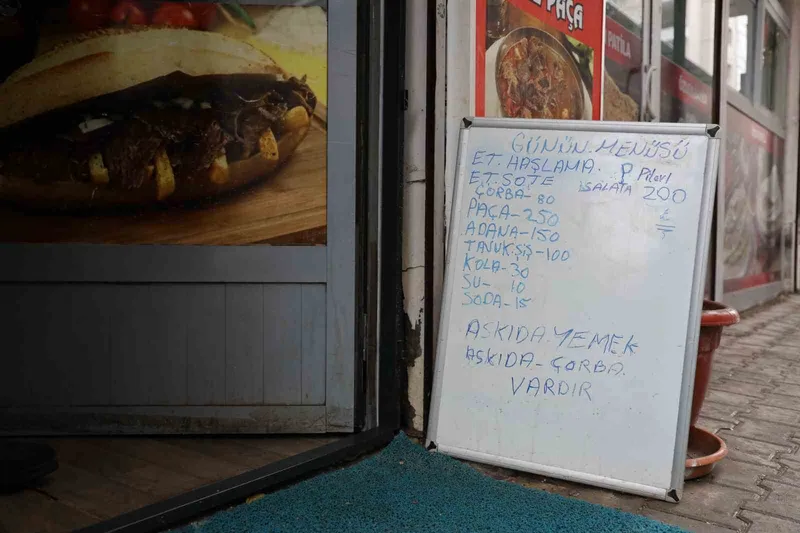 PAÇA
PATİLA
GÜNÜN. MENÜSÜ
ET. HAŞLAMA. Pilavl
ET. SOTE SALATA 200
ÇORBA-80
PAÇA-250
ADANA-150
TAVUK.ŞİŞ-100
KOLA-30
SU- 10
SODA-15
ASKIDA.YEMEK
ASKIDA-ÇORBA.
VARDIR